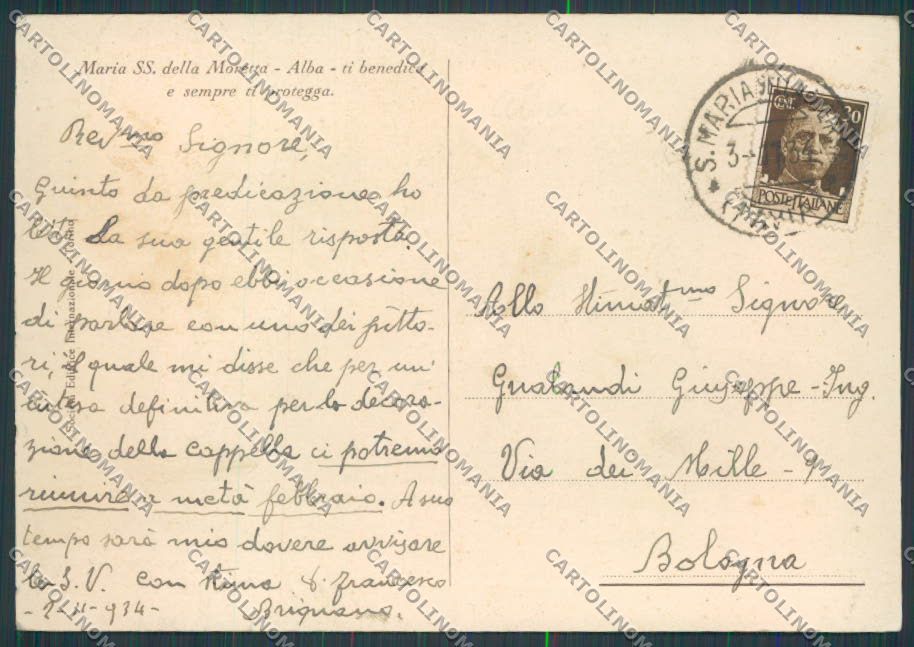 Maria SS. della Moretta - Alba - ti benedica
e sempre ti protegga.
Rev.mo Signore,
Giunto da predicazione ho
letto la sua gentile risposta.
Il giorno dopo ebbi occasione
di parlare con uno dei pitto-
ri, il quale mi disse che per un'
intesa definitiva per la decora-
zione della cappella ci potremo
riunire a metà febbraio. A suo
tempo sarà mio dovere avvisare
la S. V. Con stima d. Francesco
Brignano.
- 2-II-934-
Società Editrice Internazionale
S. MARIA
3-
CENT. 30
POSTE ITALIANE
Allo Stimat.mo Signor
Gualandi Giuseppe - Ing.
Via dei Mille - 9
Bologna
CARTOLINOMANIA